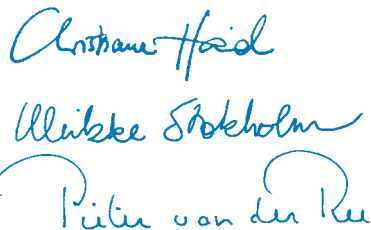 Christiane Hoid
Meikke Stokholm
Pieter van der Ree